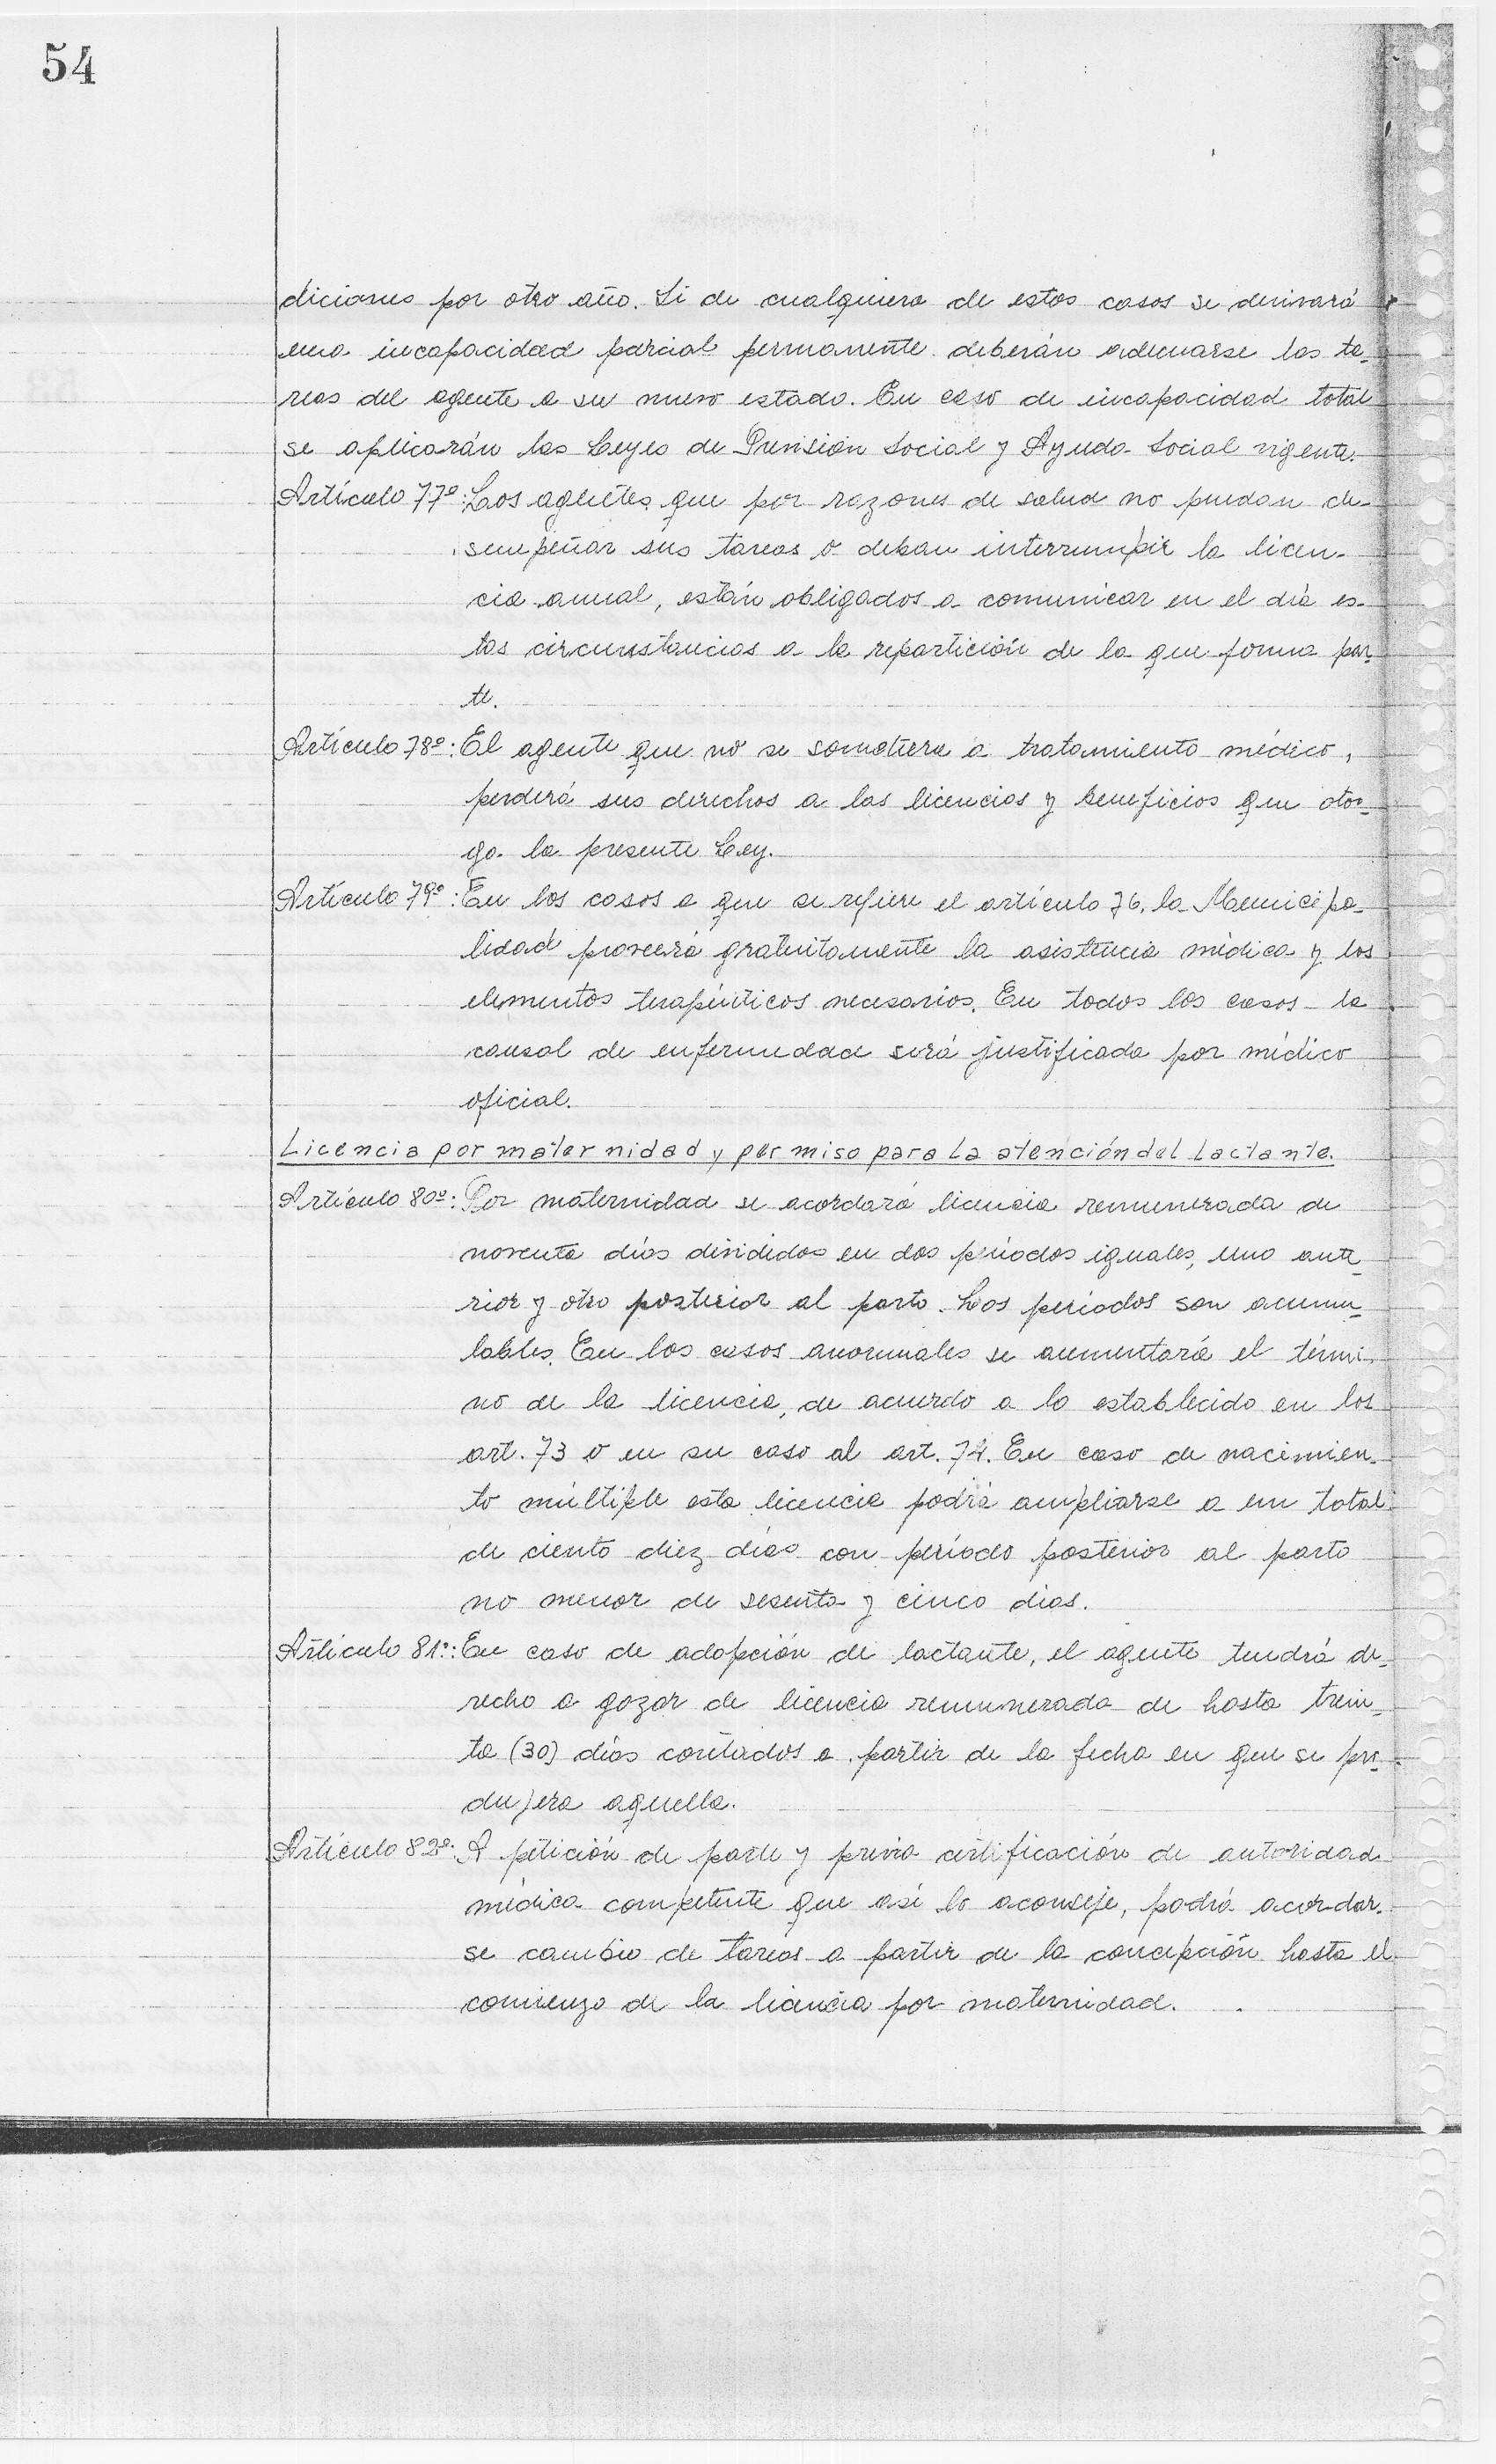 54
diciones por otro año. Si de cualquiera de estos casos se derivará
una incapacidad parcial permanente deberán adecuarse las ta-
reas del agente a su nuevo estado. En caso de incapacidad total
se aplicarán las Leyes de Previsión Social y Ayuda Social vigente.
Artículo 77º: Los agentes que por razones de salud no puedan de-
sempeñar sus tareas o deban interrumpir la licen-
cia anual, están obligados a comunicar en el día es-
tas circunstancias a la repartición de la que forma par-
te.
Artículo 78º: El agente que no se sometiera a tratamiento médico,
perderá sus derechos a las licencias y beneficios que otor-
ga la presente Ley.
Artículo 79º: En los casos a que se refiere el artículo 76, la Municipa-
lidad proveerá gratuitamente la asistencia médica y los
elementos terapéuticos necesarios. En todos los casos la
causal de enfermedad será justificada por médico
oficial.
Licencia por maternidad y permiso para la atención del lactante.
Artículo 80º: Por maternidad se acordará licencia remunerada de
noventa días divididos en dos períodos iguales, uno ante-
rior y otro posterior al parto. Los períodos son acumu-
lables. En los casos anormales se aumentará el térmi-
no de la licencia, de acuerdo a lo establecido en los
art. 73 o en su caso al art. 74. En caso de nacimien-
to múltiple esta licencia podrá ampliarse a un total
de ciento diez días con período posterior al parto
no menor de sesenta y cinco días.
Artículo 81º: En caso de adopción de lactante, el agente tendrá de-
recho a gozar de licencia remunerada de hasta trein-
ta (30) días contados a partir de la fecha en que se pro-
dujera aquella.
Artículo 82º: A petición de parte y previa certificación de autoridad
médica competente que así lo aconseje, podrá acordar-
se cambio de tareas a partir de la concepción hasta el
comienzo de la licencia por maternidad.